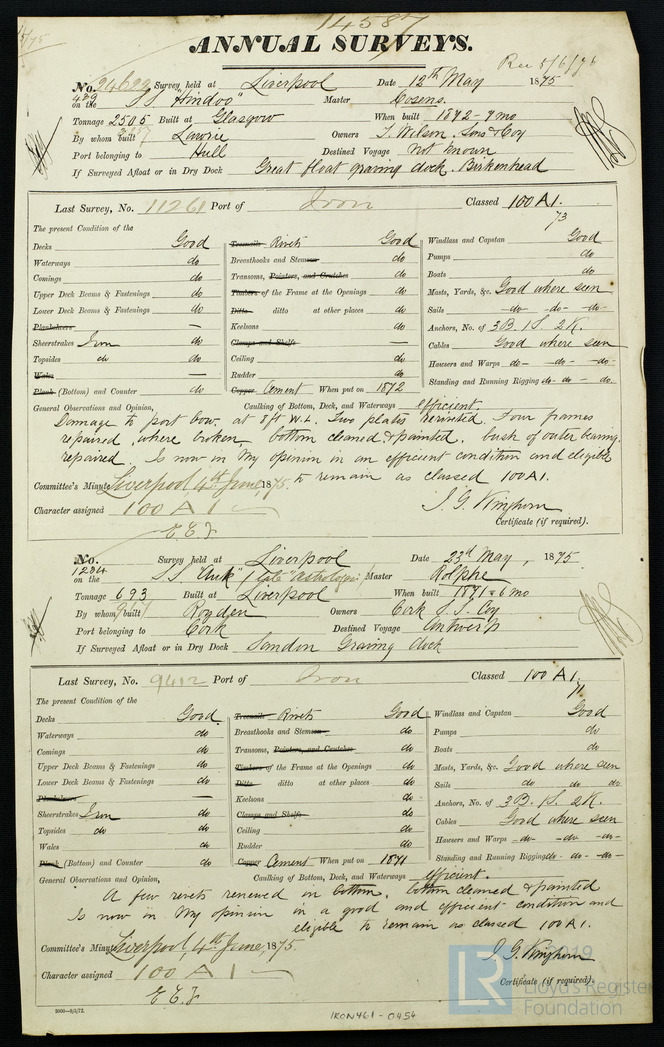 14587
ANNUAL SURVEYS.
Rec 8/6/75
No. 24629 Survey held at Liverpool Date 12th May 1875
489 on the SS "Hindoo" Master Cosens
Tonnage 2505 Built at Glasgow When built 1872-9 mo
By whom built Lawrie Owners T. Wilson, Sons & Coy
Port belonging to Hull Destined Voyage Not known
If Surveyed Afloat or in Dry Dock Great float graving dock. Birkenhead
Last Survey, No. 11261 Port of Iron Classed 100 A1.
73
The present Condition of the
Decks Good Treenails Rivets Good Windlass and Capstan Good
Waterways do Breasthooks and Stemson do Pumps do
Comings do Transoms, Pointers, and Crutches do Boats do
Upper Deck Beams & Fastenings do Timbers of the Frame at the Openings do Masts, Yards, &c. Good where seen
Lower Deck Beams & Fastenings do Ditto ditto at other places do Sails do do do
Planksheers — Keelsons do Anchors, No. of 3B. 1S. 2K.
Sheerstrakes Iron do Clamps and Shelfs — Cables Good where seen
Topsides do do Ceiling do Hawsers and Warps do do do
Wales — Rudder do Standing and Running Rigging do do do
Plank (Bottom) and Counter do Copper Cement When put on 1872
General Observations and Opinion, Caulking of Bottom, Deck, and Waterways efficient.
Damage to port bow. at 8ft W.L. Two plates reriveted. Four frames
repaired where broken, bottom cleaned & painted. bush of outer bearing
repaired. Is now in My opinion in an efficient condition and eligible
to remain as classed 100 A1.
Committee's Minute Liverpool, 4th June, 1875.
J. G. Kinghorn
Character assigned 100 A1
Certificate (if required).
No. 1284 Survey held at Liverpool Date 23rd May, 1875.
on the SS "Lark" (late "Astrologer") Master Rolphe
Tonnage 693 Built at Liverpool When built 1871 6 mo
By whom built Royden Owners Cork S. S. Coy
Port belonging to Cork Destined Voyage Antwerp
If Surveyed Afloat or in Dry Dock Sandon Graving dock
Last Survey, No. 9412 Port of Iron Classed 100 A1.
71
The present Condition of the
Decks Good Treenails Rivets Good Windlass and Capstan Good
Waterways do Breasthooks and Stemson do Pumps do
Comings do Transoms, Pointers, and Crutches do Boats do
Upper Deck Beams & Fastenings do Timbers of the Frame at the Openings do Masts, Yards, &c. Good where seen
Lower Deck Beams & Fastenings do Ditto ditto at other places do Sails do do do
Planksheers — Keelsons do Anchors, No. of 3B. 1S. 2K.
Sheerstrakes Iron do Clamps and Shelfs do Cables Good where seen
Topsides do do Ceiling do Hawsers and Warps do do do
Wales do Rudder do Standing and Running Rigging do do do
Plank (Bottom) and Counter do Copper Cement When put on 1871
General Observations and Opinion, Caulking of Bottom, Deck, and Waterways efficient.
A few rivets renewed in bottom, bottom cleaned & painted
Is now in My opinion in a good and efficient condition and
eligible to remain as classed 100 A1.
Committee's Minute Liverpool, 4th June, 1875.
J. G. Kinghorn
Character assigned 100 A1
Certificate (if required).
IRON461-0454
LR
2019
Lloyd's Register
Foundation